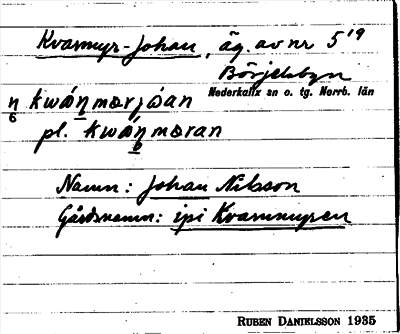 Kvarnmyr-Johan, äg. av nr 5¹⁹
Börjelsbyn
Nederkalix sn o. tg. Norrb. län
kwáŋmɑrjóan
pl. kwáŋmɑran
Namn: Johan Nilsson
Gårdsnamn: ipi Kvarnmyren
RUBEN DANIELSSON 1935